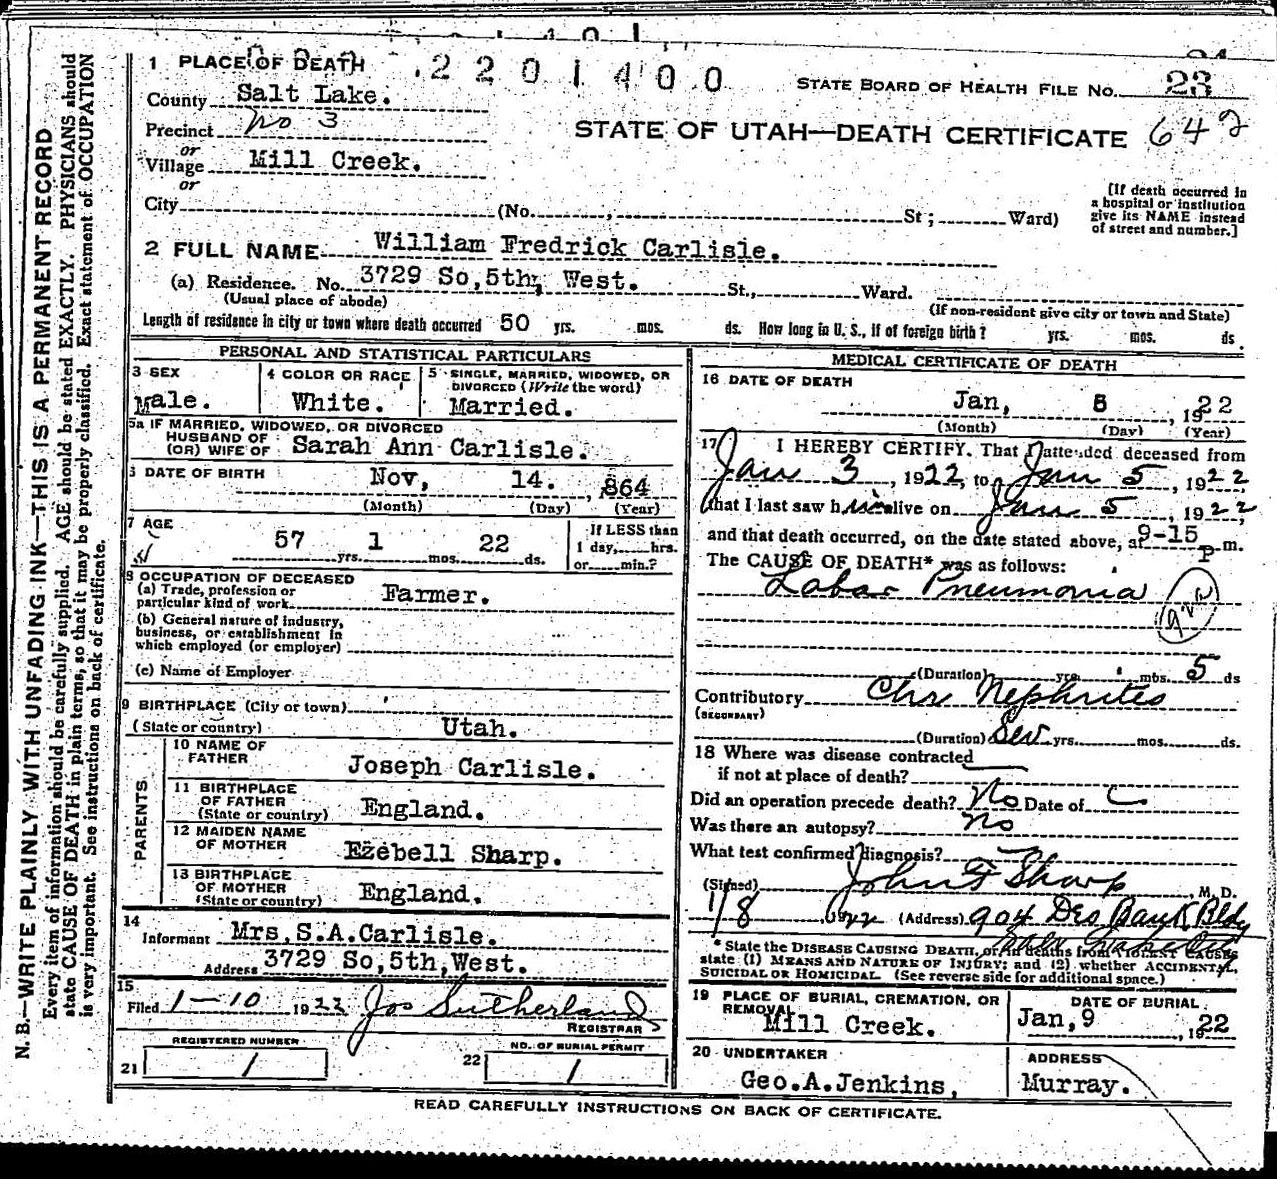 2201400
1 PLACE OF DEATH
STATE BOARD OF HEALTH FILE No. 23
County Salt Lake.
Precinct No 3
STATE OF UTAH—DEATH CERTIFICATE 642
or
Village Mill Creek.
or
City (No. , St; Ward)
[If death occurred in
a hospital or institution
give its NAME instead
of street and number.]
2 FULL NAME William Fredrick Carlisle.
(a) Residence. No. 3729 So,5th, West. St., Ward.
(Usual place of abode)
(If non-resident give city or town and State)
Length of residence in city or town where death occurred 50 yrs. mos. ds. How long in U. S., if of foreign birth? yrs. mos. ds.
PERSONAL AND STATISTICAL PARTICULARS
3 SEX
Male.
4 COLOR OR RACE
White.
5 SINGLE, MARRIED, WIDOWED, OR
DIVORCED (Write the word)
Married.
5a IF MARRIED, WIDOWED, OR DIVORCED
HUSBAND OF
(OR) WIFE OF Sarah Ann Carlisle.
6 DATE OF BIRTH
Nov, 14. , 864
(Month) (Day) (Year)
7 AGE
57 yrs. 1 mos. 22 ds.
If LESS than
1 day, hrs.
or min.?
8 OCCUPATION OF DECEASED
(a) Trade, profession or
particular kind of work Farmer.
(b) General nature of industry,
business, or establishment in
which employed (or employer)
(c) Name of Employer
9 BIRTHPLACE (City or town)
(State or country) Utah.
PARENTS
10 NAME OF
FATHER Joseph Carlisle.
11 BIRTHPLACE
OF FATHER
(State or country) England.
12 MAIDEN NAME
OF MOTHER Ezebell Sharp.
13 BIRTHPLACE
OF MOTHER
(State or country) England.
14
Informant Mrs.S.A.Carlisle.
Address 3729 So,5th,West.
15
Filed 1-10 1922 Jos Sutherland
REGISTRAR
REGISTERED NUMBER
21 1
NO. OF BURIAL PERMIT
22 1
MEDICAL CERTIFICATE OF DEATH
16 DATE OF DEATH
Jan, 5 , 1922
(Month) (Day) (Year)
17 I HEREBY CERTIFY. That I attended deceased from
Jan 3 , 1922, to Jan 5 , 1922
that I last saw him alive on Jan 5 , 1922
and that death occurred, on the date stated above, at 9-15 P m.
The CAUSE OF DEATH* was as follows:
Lobar Pneumonia
(Duration) yrs. mos. 5 ds
Contributory Chr Nephrites
(SECONDARY)
(Duration) Sev yrs. mos. ds.
18 Where was disease contracted
if not at place of death?
Did an operation precede death? No Date of
Was there an autopsy? no
What test confirmed diagnosis?
(Signed) John F Sharp , M. D.
1/8 , 1922 (Address) 904 Des Bank Bldg
* State the DISEASE CAUSING DEATH, or, in deaths from VIOLENT CAUSES
state (1) MEANS AND NATURE OF INJURY; and (2) whether ACCIDENTAL,
SUICIDAL OR HOMICIDAL. (See reverse side for additional space.)
19 PLACE OF BURIAL, CREMATION, OR
REMOVAL
Mill Creek.
DATE OF BURIAL
Jan,9 , 1922
20 UNDERTAKER
Geo.A.Jenkins,
ADDRESS
Murray.
READ CAREFULLY INSTRUCTIONS ON BACK OF CERTIFICATE.
N. B.—WRITE PLAINLY WITH UNFADING INK—THIS IS A PERMANENT RECORD
Every item of information should be carefully supplied. AGE should be stated EXACTLY. PHYSICIANS should
state CAUSE OF DEATH in plain terms, so that it may be properly classified. Exact statement of OCCUPATION
is very important. See instructions on back of certificate.